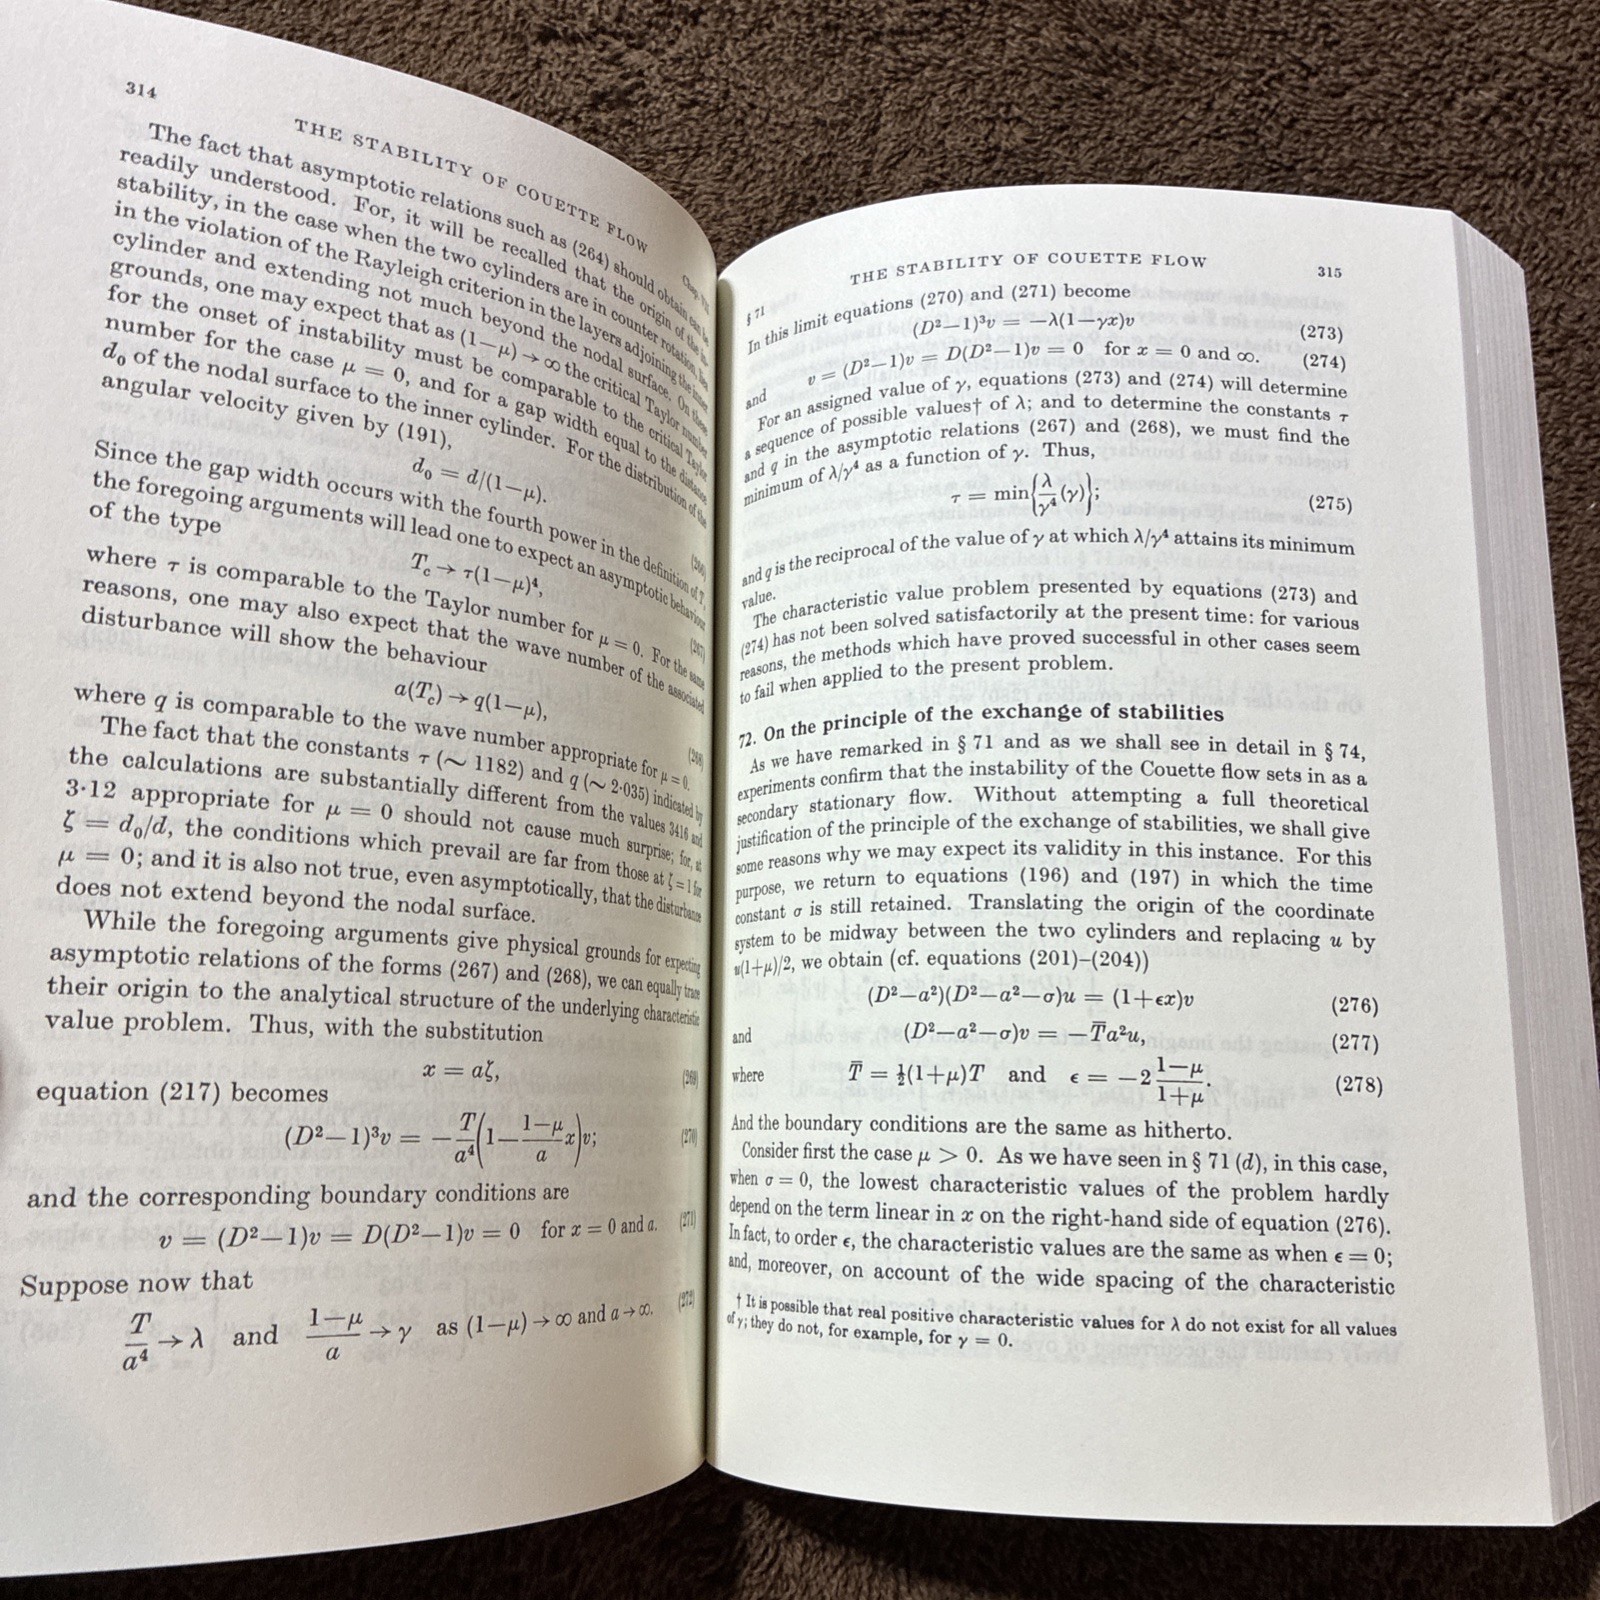 314
THE STABILITY OF COUETTE FLOW
Chap. VII
The fact that asymptotic relations such as (264) should obtain can be
readily understood. For, it will be recalled that the origin of the in-
stability, in the case when the two cylinders are in counter rotation, lies
in the violation of the Rayleigh criterion in the layers adjoining the inner
cylinder and extending not much beyond the nodal surface. On these
grounds, one may expect that as (1−μ) → ∞ the critical Taylor number
for the onset of instability must be comparable to the critical Taylor
number for the case μ = 0, and for a gap width equal to the distance
d₀ of the nodal surface to the inner cylinder. For the distribution of the
angular velocity given by (191),
d₀ = d/(1−μ). (266)
Since the gap width occurs with the fourth power in the definition of T,
the foregoing arguments will lead one to expect an asymptotic behaviour
of the type
T_c → τ(1−μ)⁴, (267)
where τ is comparable to the Taylor number for μ = 0. For the same
reasons, one may also expect that the wave number of the associated
disturbance will show the behaviour
a(T_c) → q(1−μ), (268)
where q is comparable to the wave number appropriate for μ = 0.
The fact that the constants τ (∼ 1182) and q (∼ 2·035) indicated by
the calculations are substantially different from the values 3416 and
3·12 appropriate for μ = 0 should not cause much surprise; for, at
ζ = d₀/d, the conditions which prevail are far from those at ζ = 1 for
μ = 0; and it is also not true, even asymptotically, that the disturbance
does not extend beyond the nodal surface.
While the foregoing arguments give physical grounds for expecting
asymptotic relations of the forms (267) and (268), we can equally trace
their origin to the analytical structure of the underlying characteristic
value problem. Thus, with the substitution
x = aζ, (269)
equation (217) becomes
(D²−1)³v = −T/a⁴(1−(1−μ)/a x)v; (270)
and the corresponding boundary conditions are
v = (D²−1)v = D(D²−1)v = 0 for x = 0 and a. (271)
Suppose now that
T/a⁴ → λ and (1−μ)/a → γ as (1−μ) → ∞ and a → ∞. (272)
§ 71
THE STABILITY OF COUETTE FLOW
315
In this limit equations (270) and (271) become
(D²−1)³v = −λ(1−γx)v (273)
and v = (D²−1)v = D(D²−1)v = 0 for x = 0 and ∞. (274)
For an assigned value of γ, equations (273) and (274) will determine
a sequence of possible values† of λ; and to determine the constants τ
and q in the asymptotic relations (267) and (268), we must find the
minimum of λ/γ⁴ as a function of γ. Thus,
τ = min{λ/γ⁴(γ)}; (275)
and q is the reciprocal of the value of γ at which λ/γ⁴ attains its minimum
value.
The characteristic value problem presented by equations (273) and
(274) has not been solved satisfactorily at the present time: for various
reasons, the methods which have proved successful in other cases seem
to fail when applied to the present problem.
72. On the principle of the exchange of stabilities
As we have remarked in § 71 and as we shall see in detail in § 74,
experiments confirm that the instability of the Couette flow sets in as a
secondary stationary flow. Without attempting a full theoretical
justification of the principle of the exchange of stabilities, we shall give
some reasons why we may expect its validity in this instance. For this
purpose, we return to equations (196) and (197) in which the time
constant σ is still retained. Translating the origin of the coordinate
system to be midway between the two cylinders and replacing u by
u(1+μ)/2, we obtain (cf. equations (201)–(204))
(D²−a²)(D²−a²−σ)u = (1+ϵx)v (276)
and (D²−a²−σ)v = −T̅a²u, (277)
where T̅ = ½(1+μ)T and ϵ = −2(1−μ)/(1+μ). (278)
And the boundary conditions are the same as hitherto.
Consider first the case μ > 0. As we have seen in § 71 (d), in this case,
when σ = 0, the lowest characteristic values of the problem hardly
depend on the term linear in x on the right-hand side of equation (276).
In fact, to order ϵ, the characteristic values are the same as when ϵ = 0;
and, moreover, on account of the wide spacing of the characteristic
† It is possible that real positive characteristic values for λ do not exist for all values
of γ; they do not, for example, for γ = 0.